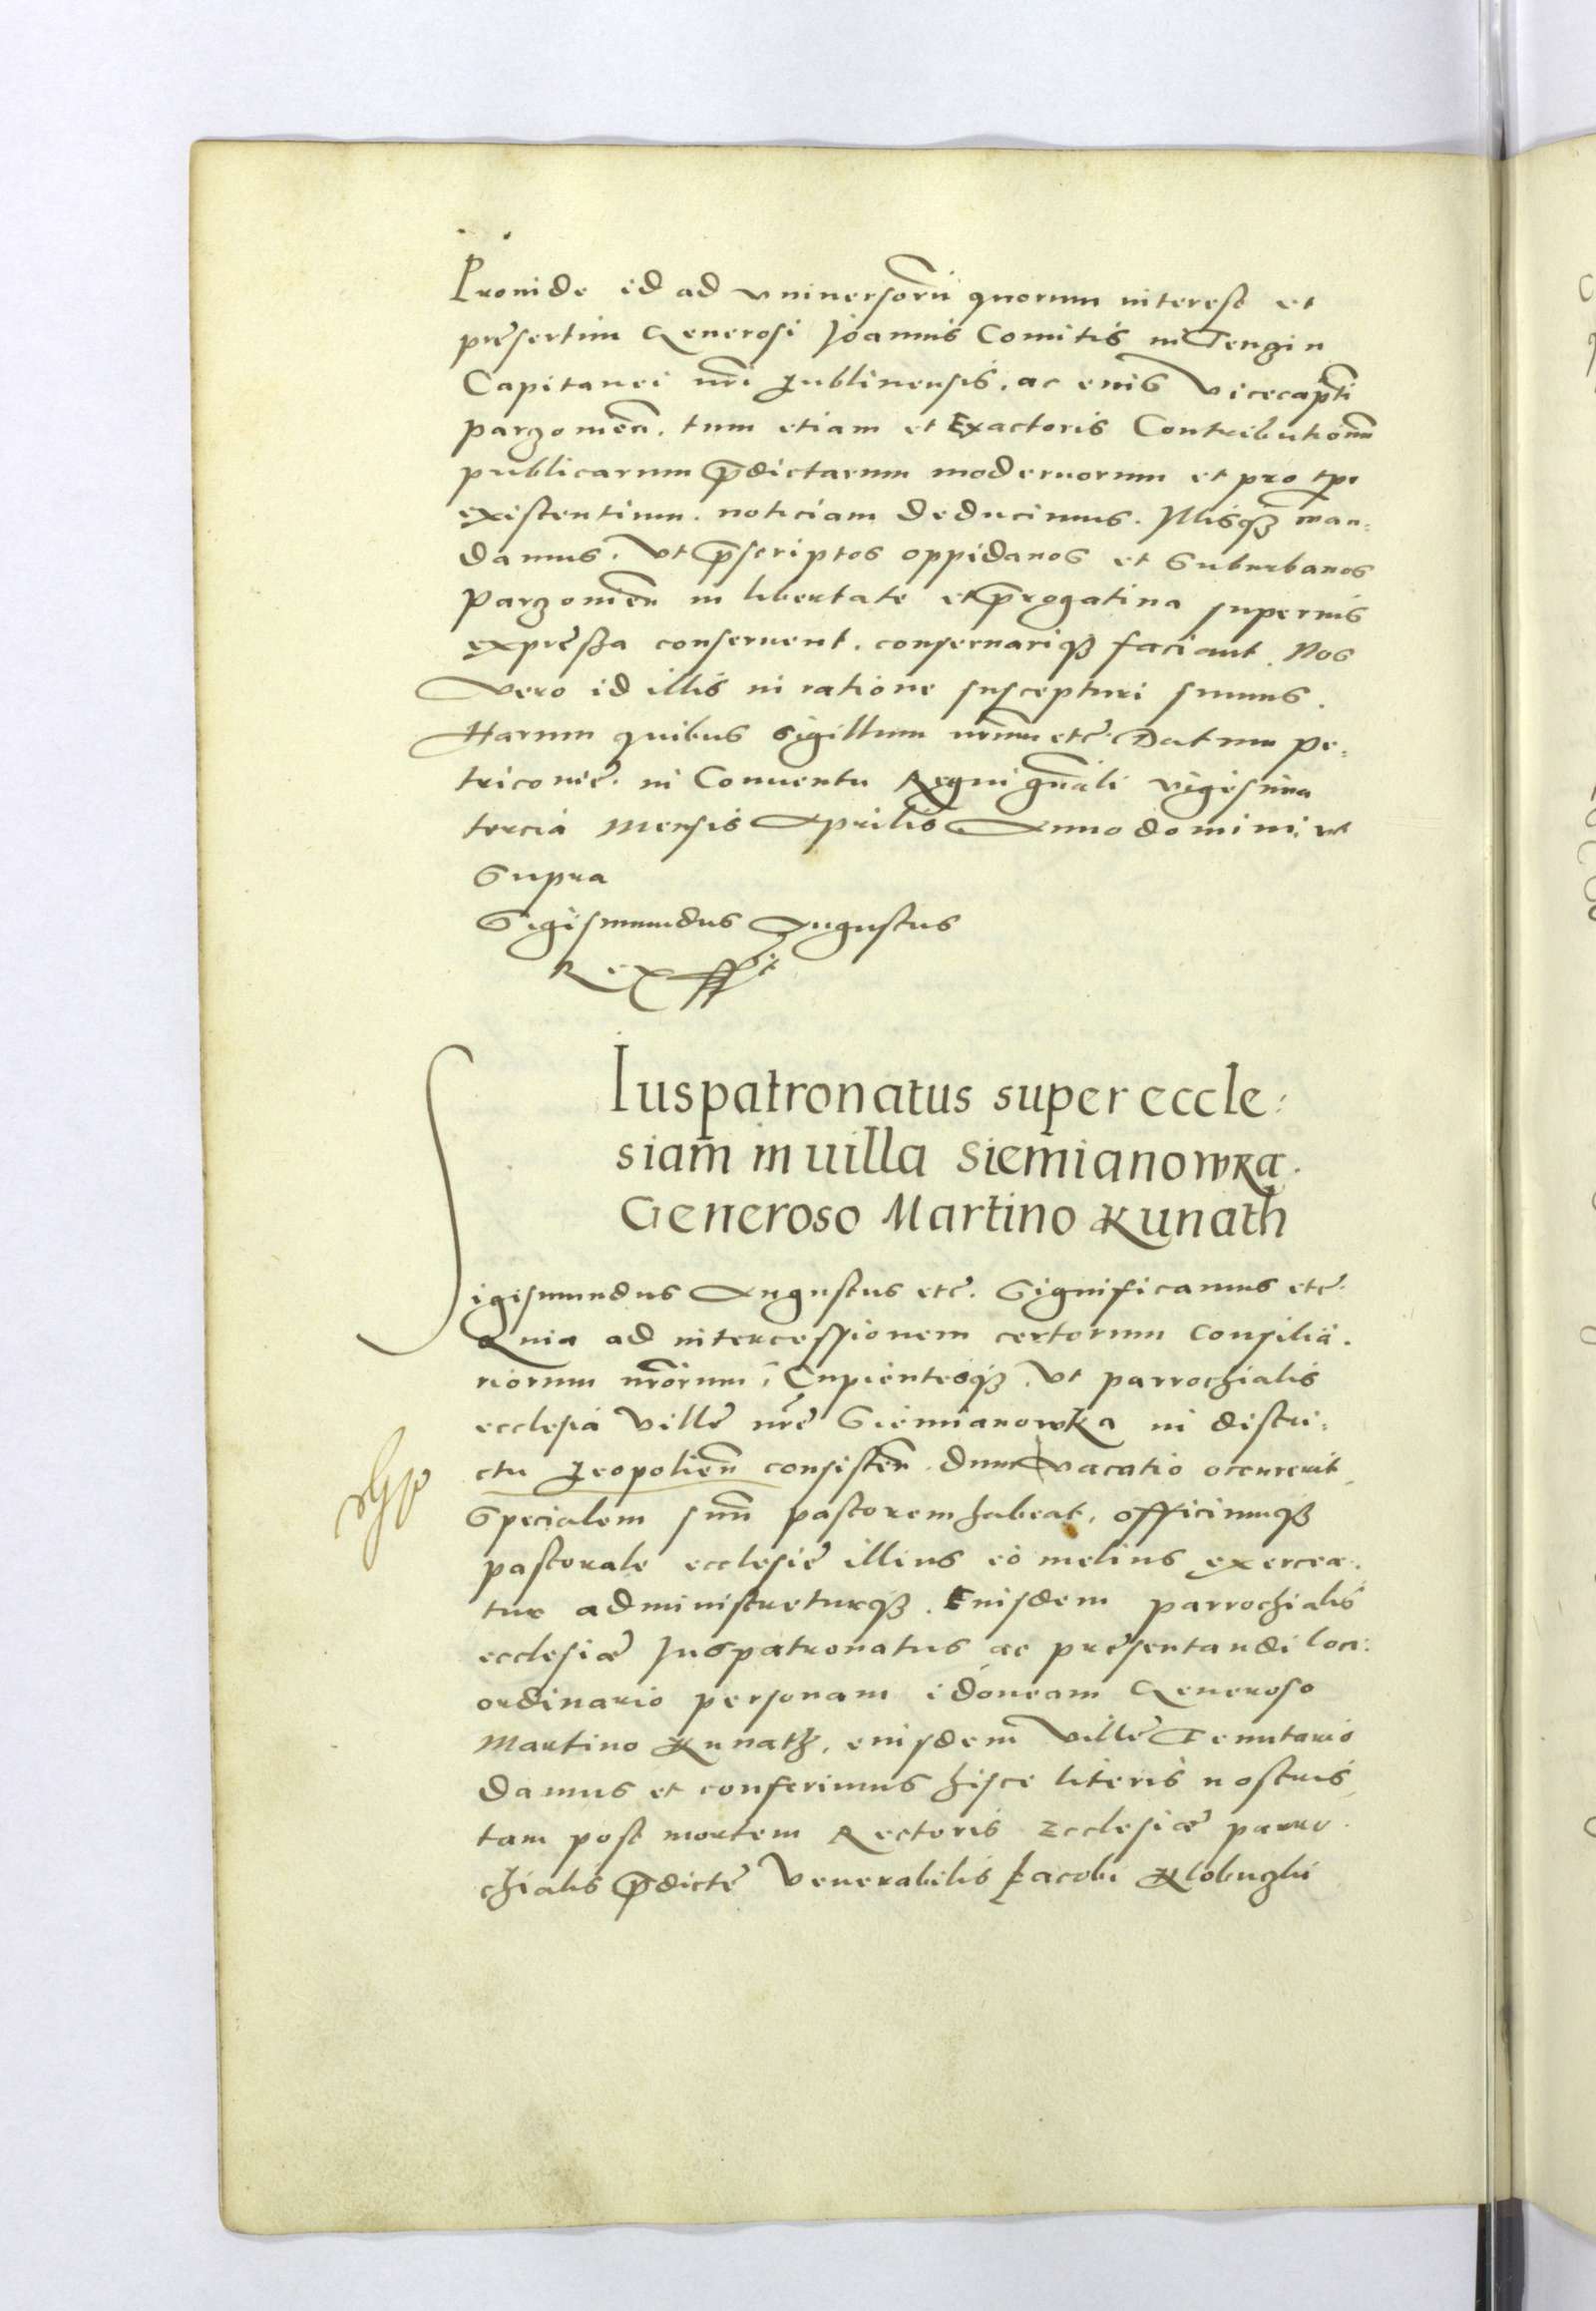 Proinde id ad universorũ quorum interest et
presertim Generosi Joannis Comitis in Tenzin
Capitanei nr̃i Lublinensis. ac eius Vicecapt̃i
parzovien̄. tum etiam et Exactoris Contributionũ
publicarum p̄dictarum modernorum et pro tp̄r
existentium. noticiam deducimus. Illisq₃ man=
damus. Vt p̄scriptos oppidanos et Suburbanos
Parzovien̄ in libertate et p̄rogativa superius
expressa conservent. conservariq₃ faciant. Nos
vero id illis in ratione suscepturi sumus.
Harum quibus Sigillum nr̃um etc̃. Datum Pe=
triconię. in Conventu Regni gn̄ali vigesima
tercia Mensis Aprilis Anno domini. ut
Supra
Sigismundus Augustus
Rex sst
Iuspatronatus super eccle=
siam in uilla Siemianowka.
Generoso Martino Kunath
Sigismundus Augustus etc̃. Significamus etc̃.
Quia ad intercessionem certorum Consilia.
riorum nr̃orum, Cupientesq₃. Vt parrochialis
ecclesia Villę nr̃ę Siemianowka in distri=
ctu Leopolien̄ consisten̄. dum vacatio occurerit
Specialem suũ pastorem habeat. officiumq₃
pastorale ecclesię illius eò melius exercea.
tur administreturq₃. Eiusdem parrochialis
ecclesiæ Juspatronatus ac presentandi loci
ordinario personam idoneam Generoso
Martino Kunath, eiusdem Villę Tenutario
damus et conferimus hisce literis nostris
tam post mortem Rectoris Ecclesiæ parro.
chialis p̄dictę Venerabilis Jacobi Klobuzhi